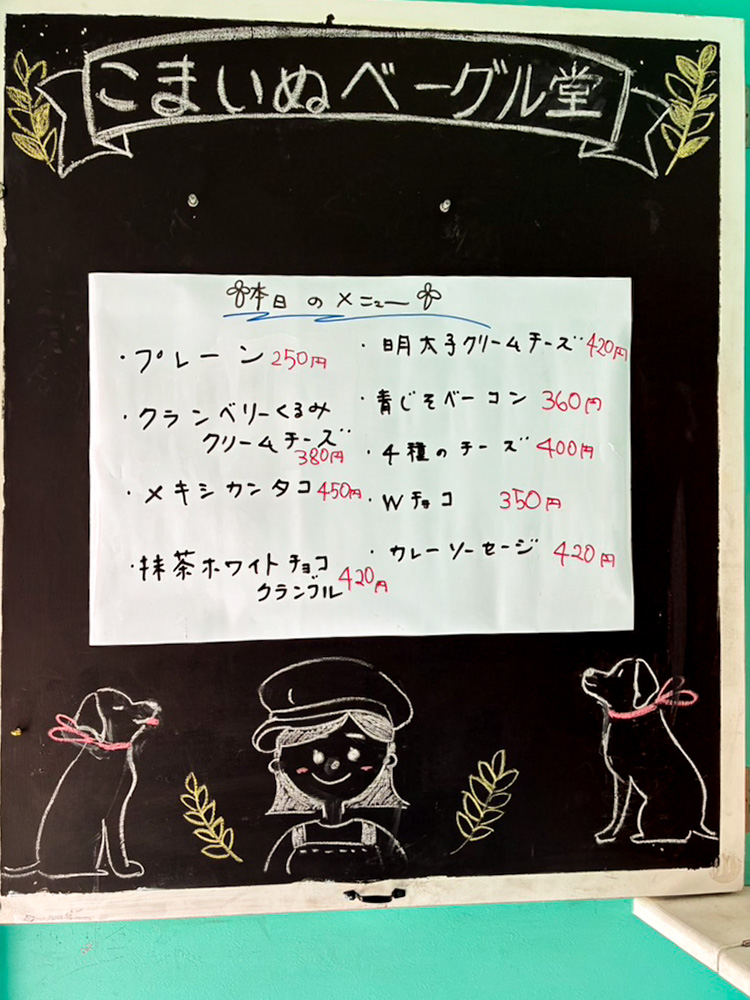 こまいぬベーグル堂
本日のメニュー
・プレーン 250円
・クランベリーくるみ
クリームチーズ
380円
・メキシカンタコ 450円
・抹茶ホワイトチョコ
クランブル 420円
・明太子クリームチーズ 420円
・青じそベーコン 360円
・4種のチーズ 400円
・Wチョコ 350円
・カレーソーセージ 420円